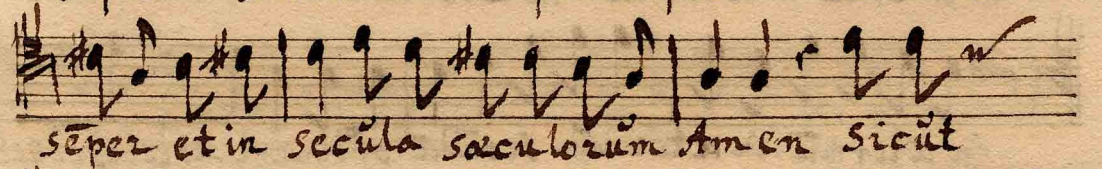 sēper et in secŭla sæculorŭm Amen Sicŭt